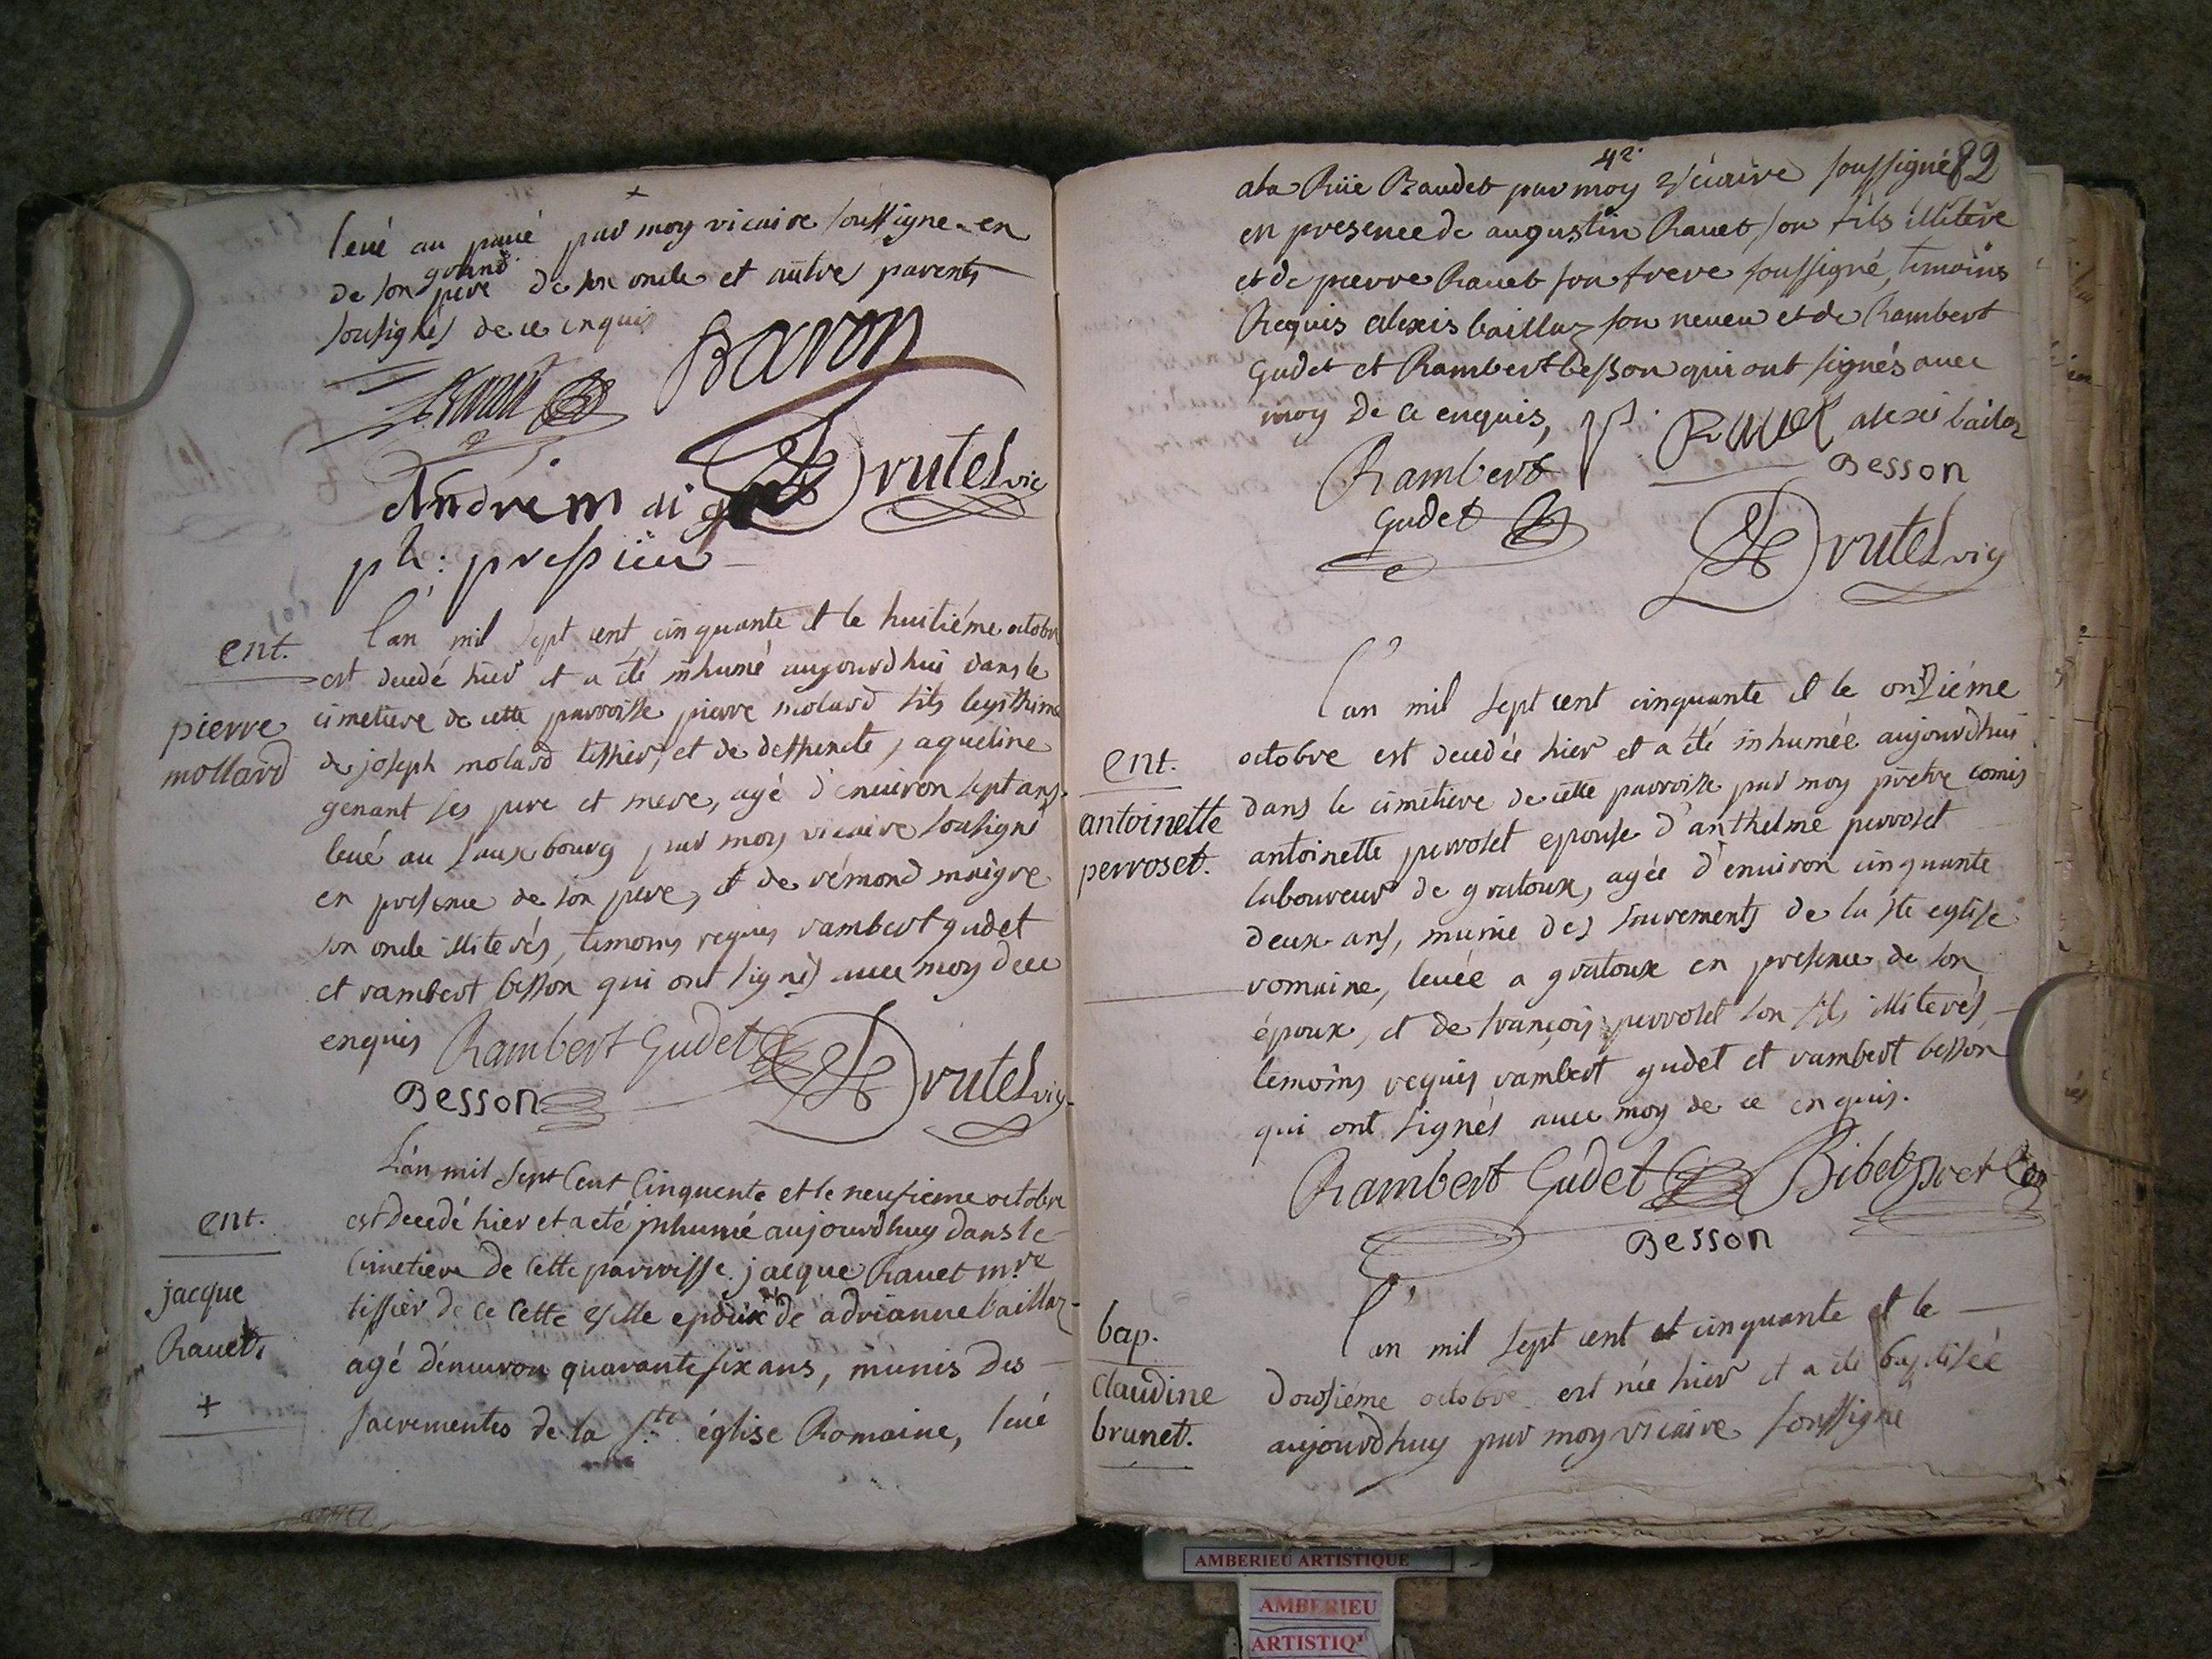 levé au pavé par moy vicaire soussigné en
de son grand pere de son oncle et autre parents
sousignés de ce enquis
Baron
Andrem di
Drutel vic
ph: pressieu
ent.
pierre
mollard
l'an mil sept cent cinquante et le huitiéme octobre
est decedé hier et a été inhumé aujourdhui dans le
cimetiere de cette parroisse pierre molard fils legithime
de joseph molard tissier, et de deffuncte jaqueline
genant ses pere et mere, agé d'environ sept ans
levé au fauxbourg par moy vicaire sousigné
en presence de son pere, et de rémond maigre
son oncle illiterés, temoins requis rambert gudet
et rambert besson qui ont signés avec moy de ce
enquis Rambert Gudet
Besson
Drutel vic.
ent.
jacque
Ravet.
+
L'an mil sept Cent Cinquente et le neufieme octobre
est decedé hier et a eté jnhumé aujourd'huy dans le
Cimetiere de Cette parroisse jacque Ravet m.re
tissier de ce Cette ville epoux de adrianne baillaz
agé d'environ quarante six ans, munis des
sacrementes de la S.te église Romaine, levé
42.
82
a la Rüe Baudet par moy Vicaire soussigné
en presence de augustin Ravet son fils illitere
et de pierre Ravet son frere soussigné, temoins
Requis alexis baillaz son neveu et de Rambert
Gudet et Rambert besson qui ont signés avec
moy de ce enquis, p. Ravet alexi bailaz
Rambert
Gudet
Besson
Drutel vic
ent.
antoinette
perroset.
L'an mil sept cent cinquante et le onziéme
octobre est decedée hier et a été inhumée aujourdhui
dans le cimetiere de cette parroisse par moy prêtre comis
antoinette perroset epouse d'anthelme perroset
laboureur de gratoux, agée d'environ cinquante
deux ans, munie des sacrements de la ste eglise
romaine, levée a gratoux en presence de son
époux, et de françois perroset son fils illiterés,
temoins requis rambert gudet et rambert besson
qui ont signés avec moy de ce enquis.
Rambert Gudet Bibet
Besson
bap.
claudine
brunet.
L'an mil sept cent et cinquante et le
douziéme octobre est née hier et a été baptisée
aujourdhuy par moy vicaire soussigné
AMBERIEU ARTISTIQUE
AMBERIEU
ARTISTIQ